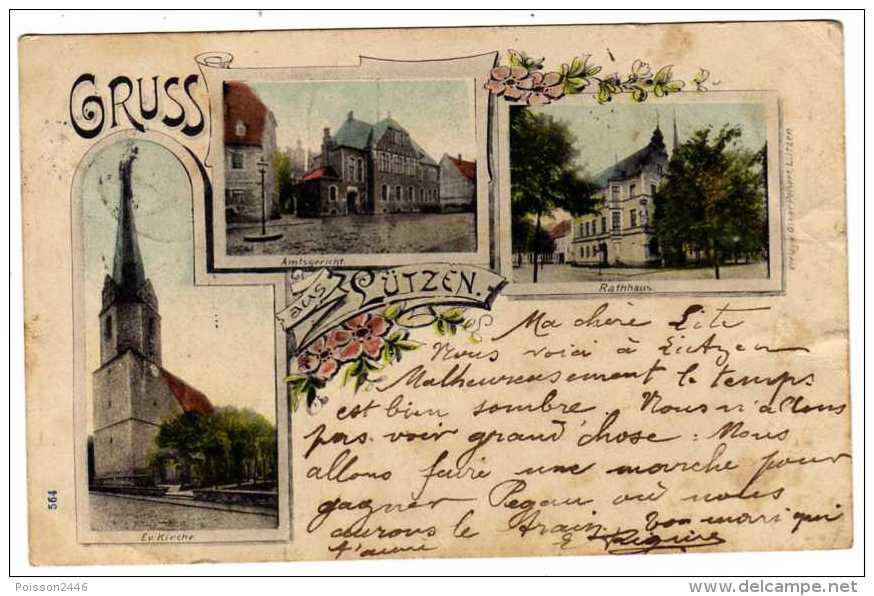 GRUSS
aus
LÜTZEN.
Amtsgericht.
Rathhaus.
Ev. Kirche
564
Ma chère Lite
Nous voici à Lützen
Malheureusement le temps
est bien sombre. Nous n'allons
pas voir grand'chose. Nous
allons faire une marche pour
gagner Pegau où nous
aurons le train. Ton mari qui
t'aime
Poisson2446
www.delcampe.net